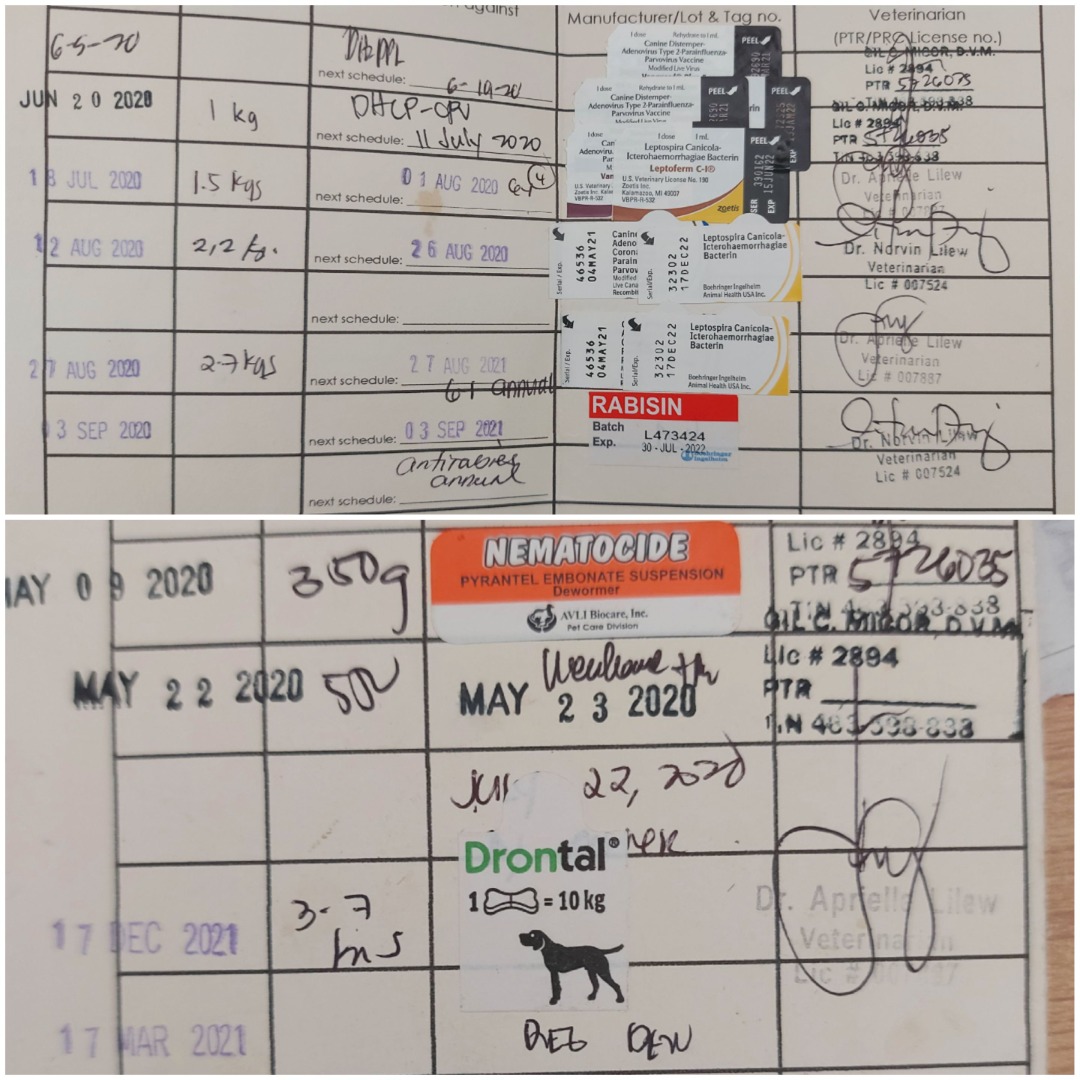 against
Manufacturer/Lot & Tag no.
Veterinarian
(PTR/PRC License no.)
6-5-20
DHPPL
next schedule: 6-19-20
1 dose Rehydrate to 1 mL
Canine Distemper-
Adenovirus Type 2-Parainfluenza-
Parvovirus Vaccine
Modified Live Virus
PEEL
GIL C. MIGOR, D.V.M.
Lic # 2894
PTR 5726035
JUN 20 2020
1 kg
next schedule: 11 July 2020
1 dose Rehydrate to 1 mL
Canine Distemper-
Adenovirus Type 2-Parainfluenza-
Parvovirus Vaccine
PEEL
PEEL
GIL C. MIGOR, D.V.M.
Lic # 2894
PTR 5726035
18 JUL 2020
1.5 kgs
01 AUG 2020
4
next schedule:
1 dose
1 dose 1 mL
Leptospira Canicola-
Icterohaemorrhagiae Bacterin
Leptoferm C-I®
U.S. Veterinary License No. 190
Zoetis Inc.
Kalamazoo, MI 49007
VBPR-H-532
zoetis
PEEL
SER 390162
EXP 15JUN22
Dr. Aprielle Lilew
Veterinarian
12 AUG 2020
2,2 kg.
26 AUG 2020
next schedule:
Serial / Exp.
46536
04MAY21
Serial/Exp.
32302
17DEC22
Leptospira Canicola-
Icterohaemorrhagiae
Bacterin
Boehringer Ingelheim
Animal Health USA Inc.
Dr. Norvin Lilew
Veterinarian
Lic # 007524
next schedule:
27 AUG 2020
2.7 kgs
27 AUG 2021
next schedule:
6-1 annual
Serial / Exp.
46536
04MAY21
Serial/Exp.
32302
17DEC22
Leptospira Canicola-
Icterohaemorrhagiae
Bacterin
Boehringer Ingelheim
Animal Health USA Inc.
Dr. Aprielle Lilew
Veterinarian
Lic # 007887
03 SEP 2020
next schedule: 03 SEP 2021
antirabies
annual
RABISIN
Batch L473424
Exp. 30-JUL-2022
Boehringer
Ingelheim
Dr. Norvin Lilew
Veterinarian
Lic # 007524
next schedule:
MAY 09 2020
350g
NEMATOCIDE
PYRANTEL EMBONATE SUSPENSION
Dewormer
AVLI Biocare, Inc.
Pet Care Division
Lic # 2894
PTR 5726035
MAY 22 2020
MAY 23 2020
GIL C. MIGOR, D.V.M.
Lic # 2894
PTR
22, 2020
Drontal®
1 = 10 kg
17 DEC 2021
3-7
Dr. Aprielle Lilew
Veterinarian
17 MAR 2021